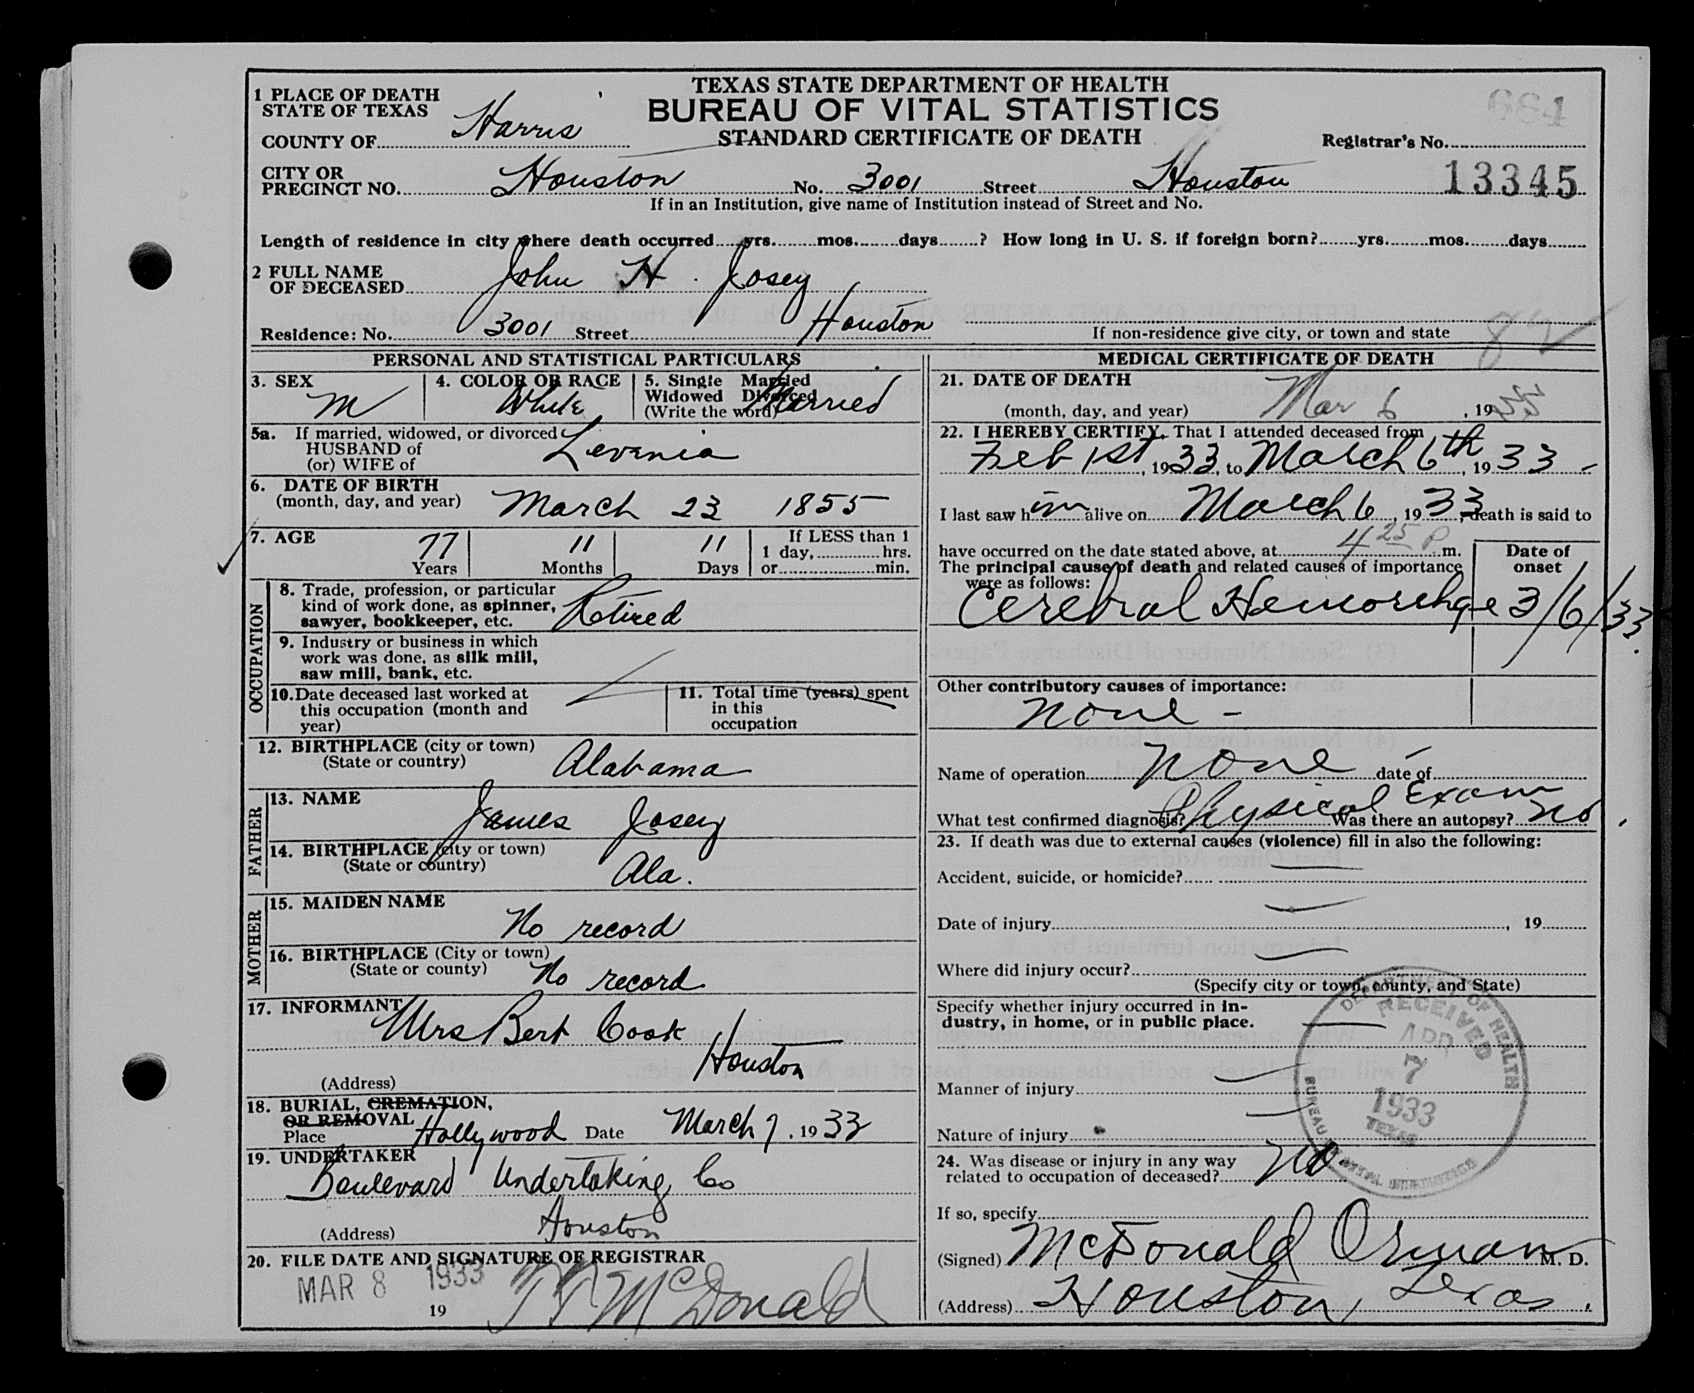 TEXAS STATE DEPARTMENT OF HEALTH
BUREAU OF VITAL STATISTICS
STANDARD CERTIFICATE OF DEATH
1 PLACE OF DEATH
STATE OF TEXAS
COUNTY OF Harris
684
Registrar's No.
CITY OR
PRECINCT NO. Houston No. 3001 Street Houston 13345
If in an Institution, give name of Institution instead of Street and No.
Length of residence in city where death occurred yrs. mos. days ? How long in U. S. if foreign born? yrs. mos. days
2 FULL NAME
OF DECEASED John H. Josey
Residence: No. 3001 Street Houston
If non-residence give city, or town and state
82
PERSONAL AND STATISTICAL PARTICULARS
3. SEX M
4. COLOR OR RACE White
5. Single Married
Widowed Divorced
(Write the word) Married
5a. If married, widowed, or divorced
HUSBAND of
(or) WIFE of Levenia
6. DATE OF BIRTH
(month, day, and year) March 23 1855
7. AGE 77 Years 11 Months 11 Days
If LESS than 1
1 day, hrs.
or min.
OCCUPATION
8. Trade, profession, or particular
kind of work done, as spinner,
sawyer, bookkeeper, etc. Retired
9. Industry or business in which
work was done, as silk mill,
saw mill, bank, etc.
10. Date deceased last worked at
this occupation (month and
year)
11. Total time (years) spent
in this
occupation
12. BIRTHPLACE (city or town)
(State or country) Alabama
FATHER
13. NAME James Josey
14. BIRTHPLACE (city or town)
(State or country) Ala.
MOTHER
15. MAIDEN NAME No record
16. BIRTHPLACE (City or town)
(State or county) No record
17. INFORMANT Mrs Bert Cook
Houston
(Address)
18. BURIAL, CREMATION,
OR REMOVAL
Place Hollywood Date March 7, 1933
19. UNDERTAKER
Boulevard Undertaking Co
(Address) Houston
20. FILE DATE AND SIGNATURE OF REGISTRAR
MAR 8 1933
19 McDonald
MEDICAL CERTIFICATE OF DEATH
21. DATE OF DEATH
(month, day, and year) Mar 6, 1933
22. I HEREBY CERTIFY, That I attended deceased from
Feb 1st, 1933, to March 6th, 1933
I last saw him alive on March 6, 1933, death is said to
have occurred on the date stated above, at 4 25 P m.
The principal cause of death and related causes of importance
were as follows:
Date of
onset
Cerebral Hemorrhge 3/6/33.
Other contributory causes of importance:
None -
Name of operation None date of
What test confirmed diagnosis? Physical Exam Was there an autopsy? No.
23. If death was due to external causes (violence) fill in also the following:
Accident, suicide, or homicide?
Date of injury , 19
Where did injury occur?
(Specify city or town, county, and State)
Specify whether injury occurred in industry, in home, or in public place.
Manner of injury
Nature of injury
24. Was disease or injury in any way
related to occupation of deceased? No
If so, specify
(Signed) McDonald Orman M. D.
(Address) Houston, Texas.
DEPARTMENT OF HEALTH
RECEIVED
APR
7
1933
TEXAS
BUREAU OF VITAL STATISTICS